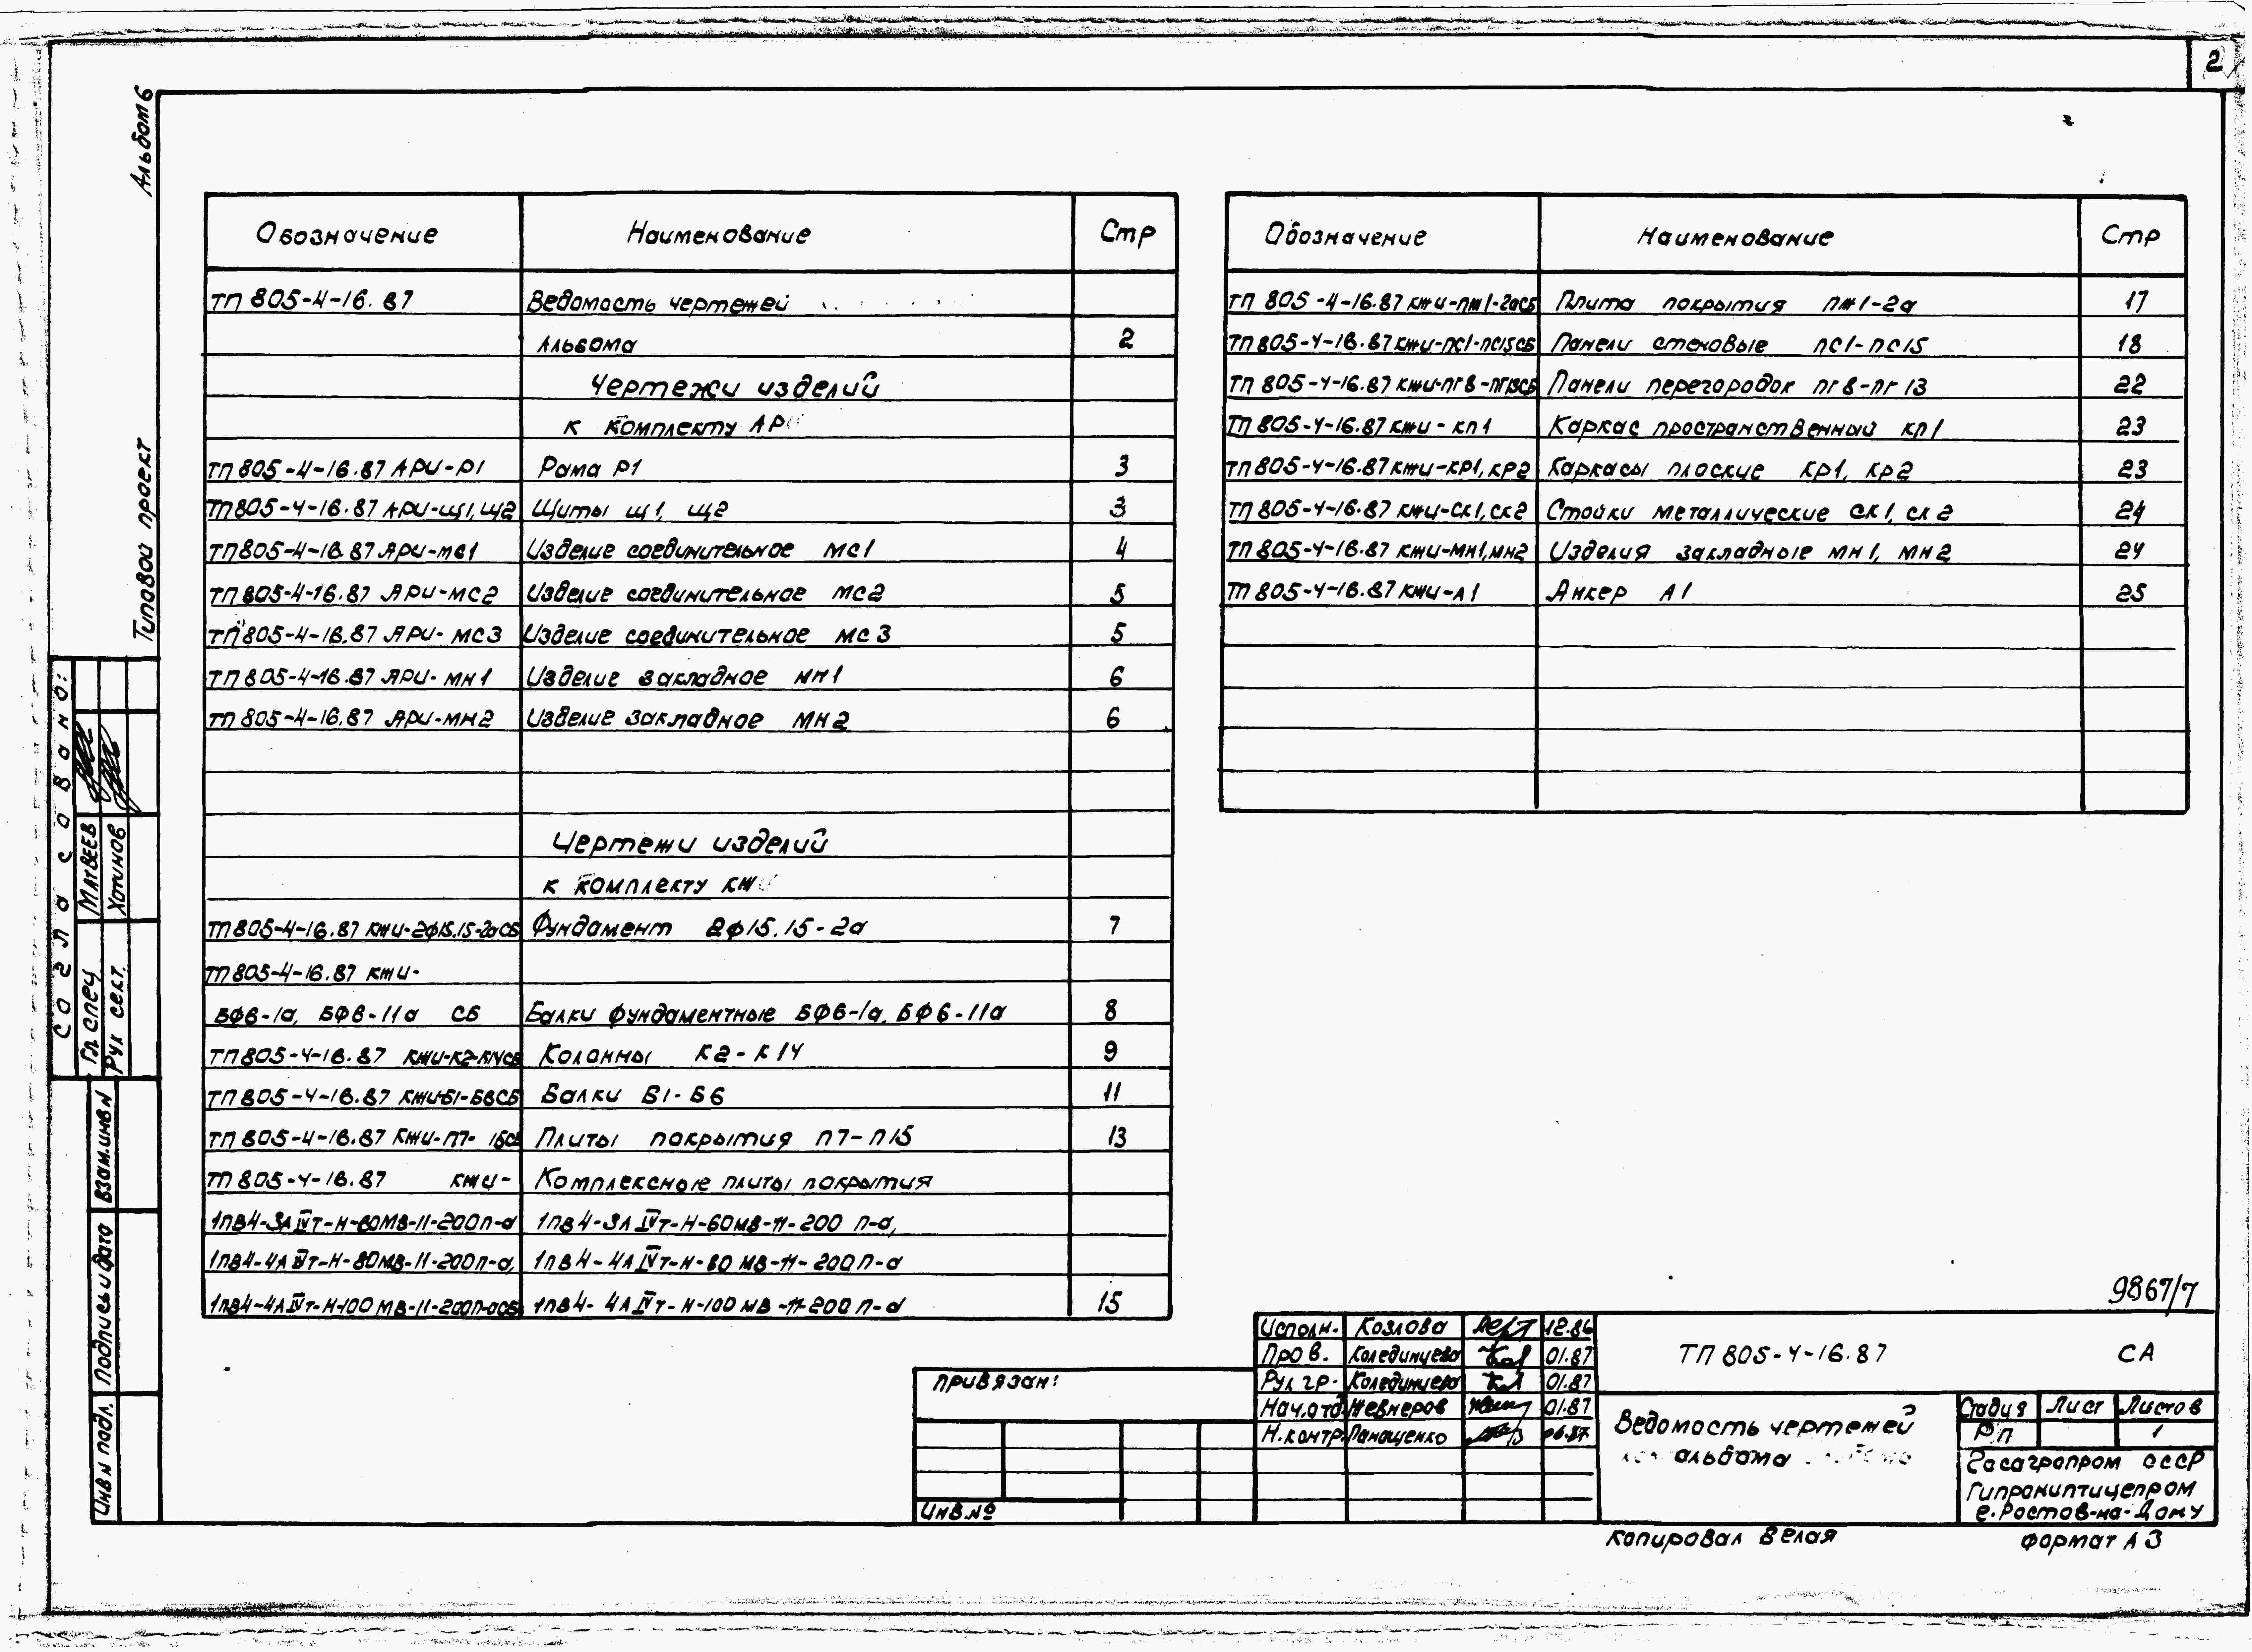 2
Альбом 6
Типовой проект
Обозначение Наименование Стр
ТП 805-4-16.87 Ведомость чертежей
альбома 2
Чертежи изделий
к комплекту АР
ТП 805-4-16.87 АРИ-Р1 Рама Р1 3
ТП 805-4-16.87 АРИ-Щ1, Щ2 Щиты Щ1, Щ2 3
ТП 805-4-16.87 АРИ-МС1 Изделие соединительное МС1 4
ТП 805-4-16.87 АРИ-МС2 Изделие соединительное МС2 5
ТП 805-4-16.87 АРИ-МС3 Изделие соединительное МС3 5
ТП 805-4-16.87 АРИ-МН1 Изделие закладное МН1 6
ТП 805-4-16.87 АРИ-МН2 Изделие закладное МН2 6
Чертежи изделий
к комплекту КЖ
ТП 805-4-16.87 КЖИ-2Ф15.15-2аСБ Фундамент 2Ф15.15-2а 7
ТП 805-4-16.87 КЖИ-
БФ6-1а, БФ6-11а СБ Балки фундаментные БФ6-1а, БФ6-11а 8
ТП 805-4-16.87 КЖИ-К2-К14СБ Колонны К2-К14 9
ТП 805-4-16.87 КЖИ-Б1-Б6СБ Балки Б1-Б6 11
ТП 805-4-16.87 КЖИ-П7- 15СБ Плиты покрытия П7-П15 13
ТП 805-4-16.87 КЖИ- Комплексные плиты покрытия
1ПВ4-3АIVт-Н-60МВ-11-200П-а 1ПВ4-3АIVт-Н-60МВ-11-200П-а,
1ПВ4-4АIVт-Н-80МВ-11-200П-а, 1ПВ4-4АIVт-Н-80МВ-11-200П-а
1ПВ4-4АIVт-Н-100МВ-11-200П-аСБ 1ПВ4-4АIVт-Н-100МВ-11-200П-а 15
Обозначение Наименование Стр
ТП 805-4-16.87 КЖИ-ПЖ1-2аСБ Плита покрытия ПЖ1-2а 17
ТП 805-4-16.87 КЖИ-ПС1-ПС15СБ Панели стеновые ПС1-ПС15 18
ТП 805-4-16.87 КЖИ-ПГ8-ПГ13СБ Панели перегородок ПГ8-ПГ13 22
ТП 805-4-16.87 КЖИ-КП1 Каркас пространственный КП1 23
ТП 805-4-16.87 КЖИ-КР1, КР2 Каркасы плоские КР1, КР2 23
ТП 805-4-16.87 КЖИ-СК1, СК2 Стойки металлические СК1, СК2 24
ТП 805-4-16.87 КЖИ-МН1, МН2 Изделия закладные МН1, МН2 24
ТП 805-4-16.87 КЖИ-А1 Анкер А1 25
Согласовано:
Гл. спец Матвеев
Рук. сект. Хотинов
Взам.инв N
Подпись и дата
Инв N подл.
9867/7
Привязан:
Инв.№
Исполн. Козлова 12.86
Пров. Колединцева 01.87
Рук гр. Колединцева 01.87
Нач.отд. Жевнеров 01.87
Н.контр. Панащенко 06.87
ТП 805-4-16.87 СА
Ведомость чертежей
альбома
Стадия Лист Листов
РП 1
Госагропром СССР
Гипрониптицепром
г.Ростов-на-Дону
Копировал Белая
Формат А3